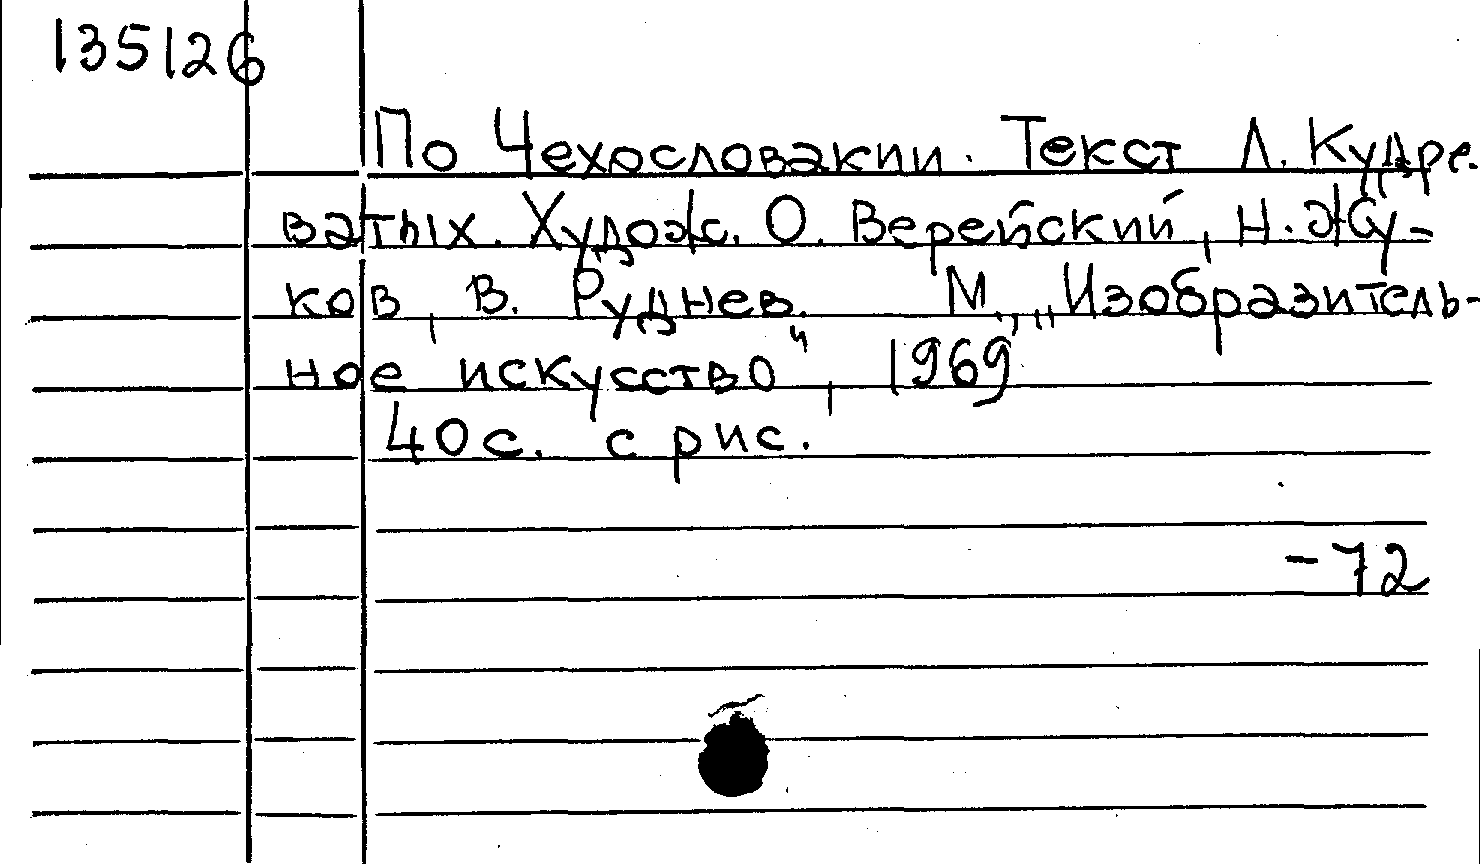 135126
По Чехословакии. Текст Л. Кудре-
ватых. Худож. О. Верейский, Н. Жу-
ков, В. Руднев. М., „Изобразитель-
ное искусство", 1969
40 с. с рис.
-72